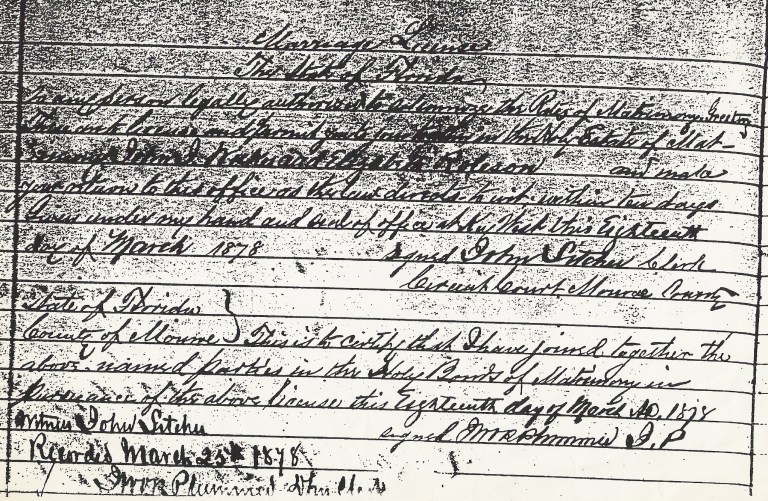 Marriage License
The State of Florida
To any person legally authorized to solemnize the Rites of Matrimony Greeting
These are to license and permit you to join in the Holy Estate of Mat-
rimony John and Elizabeth and make
your return to this office as the law directs to wit within ten days
Given under my hand and seal of office at Key West this Eighteenth
day of March 1878 signed John Clerk
Circuit Court Monroe County
State of Florida
County of Monroe } This is to certify that I have joined together the
above named parties in the Holy Bonds of Matrimony in
pursuance of the above license this Eighteenth day of March AD. 1878
Witness John signed Plummer J. P
Recorded March 25th 1878
Plummer